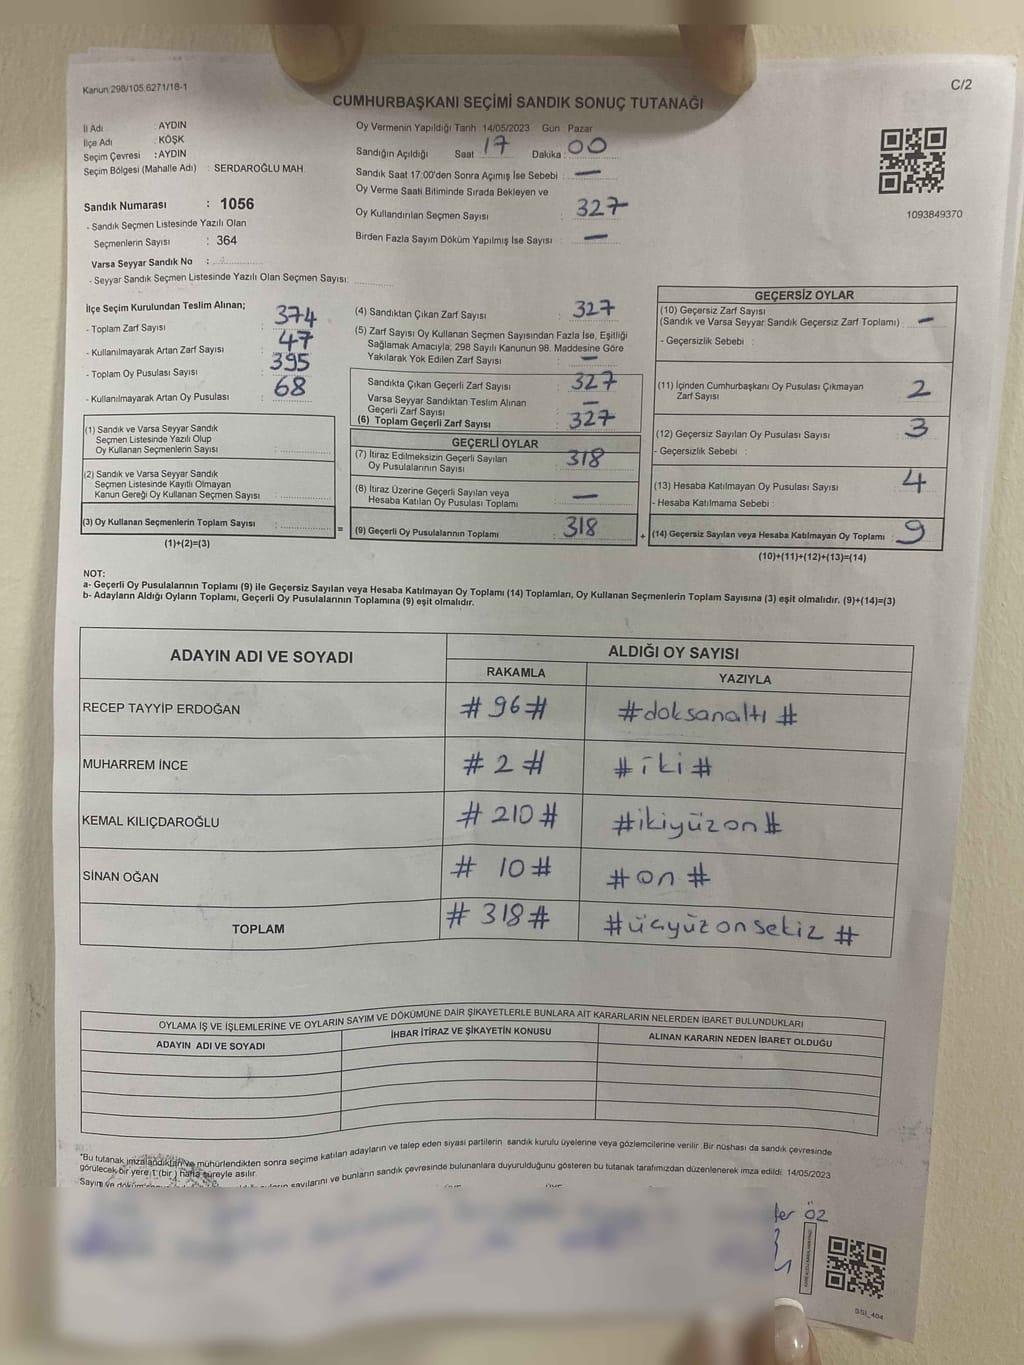 Kanun 298/105.6271/18-1
C/2
CUMHURBAŞKANI SEÇİMİ SANDIK SONUÇ TUTANAĞI
İl Adı : AYDIN
İlçe Adı : KÖŞK
Seçim Çevresi : AYDIN
Seçim Bölgesi (Mahalle Adı) : SERDAROĞLU MAH.
Sandık Numarası : 1056
- Sandık Seçmen Listesinde Yazılı Olan
Seçmenlerin Sayısı : 364
Varsa Seyyar Sandık No :
- Seyyar Sandık Seçmen Listesinde Yazılı Olan Seçmen Sayısı:
Oy Vermenin Yapıldığı Tarih 14/05/2023 Gün : Pazar
Sandığın Açıldığı Saat : 17 Dakika : 00
Sandık Saat 17:00'den Sonra Açımış İse Sebebi : —
Oy Verme Saati Bitiminde Sırada Bekleyen ve
Oy Kullandırılan Seçmen Sayısı : 327
Birden Fazla Sayım Döküm Yapılmış İse Sayısı : —
1093849370
İlçe Seçim Kurulundan Teslim Alınan;
- Toplam Zarf Sayısı : 374
- Kullanılmayarak Artan Zarf Sayısı : 47
- Toplam Oy Pusulası Sayısı : 395
- Kullanılmayarak Artan Oy Pusulası : 68
(1) Sandık ve Varsa Seyyar Sandık
Seçmen Listesinde Yazılı Olup
Oy Kullanan Seçmenlerin Sayısı :
(2) Sandık ve Varsa Seyyar Sandık
Seçmen Listesinde Kayıtlı Olmayan
Kanun Gereği Oy Kullanan Seçmen Sayısı :
(3) Oy Kullanan Seçmenlerin Toplam Sayısı :
(1)+(2)=(3)
=
(4) Sandıktan Çıkan Zarf Sayısı : 327
(5) Zarf Sayısı Oy Kullanan Seçmen Sayısından Fazla İse, Eşitliği
Sağlamak Amacıyla; 298 Sayılı Kanunun 98. Maddesine Göre
Yakılarak Yok Edilen Zarf Sayısı : —
Sandıkta Çıkan Geçerli Zarf Sayısı : 327
Varsa Seyyar Sandıktan Teslim Alınan
Geçerli Zarf Sayısı : —
(6) Toplam Geçerli Zarf Sayısı : 327
GEÇERLİ OYLAR
(7) İtiraz Edilmeksizin Geçerli Sayılan
Oy Pusulalarının Sayısı : 318
(8) İtiraz Üzerine Geçerli Sayılan veya
Hesaba Katılan Oy Pusulası Toplamı : —
(9) Geçerli Oy Pusulalarının Toplamı : 318
+
GEÇERSİZ OYLAR
(10) Geçersiz Zarf Sayısı
(Sandık ve Varsa Seyyar Sandık Geçersiz Zarf Toplamı) : —
- Geçersizlik Sebebi :
(11) İçinden Cumhurbaşkanı Oy Pusulası Çıkmayan
Zarf Sayısı : 2
(12) Geçersiz Sayılan Oy Pusulası Sayısı : 3
- Geçersizlik Sebebi :
(13) Hesaba Katılmayan Oy Pusulası Sayısı : 4
- Hesaba Katılmama Sebebi :
(14) Geçersiz Sayılan veya Hesaba Katılmayan Oy Toplamı : 9
(10)+(11)+(12)+(13)=(14)
NOT:
a- Geçerli Oy Pusulalarının Toplamı (9) ile Geçersiz Sayılan veya Hesaba Katılmayan Oy Toplamı (14) Toplamları, Oy Kullanan Seçmenlerin Toplam Sayısına (3) eşit olmalıdır. (9)+(14)=(3)
b- Adayların Aldığı Oyların Toplamı, Geçerli Oy Pusulalarının Toplamına (9) eşit olmalıdır.
ADAYIN ADI VE SOYADI ALDIĞI OY SAYISI
RAKAMLA YAZIYLA
RECEP TAYYİP ERDOĞAN # 96 # # doksanaltı #
MUHARREM İNCE # 2 # # iki #
KEMAL KILIÇDAROĞLU # 210 # # ikiyüzon #
SİNAN OĞAN # 10 # # on #
TOPLAM # 318 # # üçyüzonsekiz #
OYLAMA İŞ VE İŞLEMLERİNE VE OYLARIN SAYIM VE DÖKÜMÜNE DAİR ŞİKAYETLERLE BUNLARA AİT KARARLARIN NELERDEN İBARET BULUNDUKLARI
ADAYIN ADI VE SOYADI İHBAR İTİRAZ VE ŞİKAYETİN KONUSU ALINAN KARARIN NEDEN İBARET OLDUĞU
*Bu tutanak imzalandıktan ve mühürlendikten sonra seçime katılan adayların ve talep eden siyasi partilerin sandık kurulu üyelerine veya gözlemcilerine verilir. Bir nüshası da sandık çevresinde
görülecek bir yere 1 (bir) hafta süreyle asılır.
Sayım ve sayılarını ve bunların sandık çevresinde bulunanlara duyurulduğunu gösteren bu tutanak tarafımızdan düzenlenerek imza edildi. 14/05/2023
ÖZ